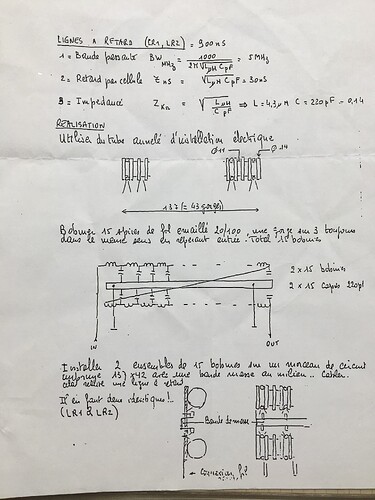 LIGNES A RETARD (LR1, LR2) = 900 nS
1 = Bande passante BW MHz = 1000 / 2π√LμH CpF = 5MHz
2 = Retard par cellule Z nS = √LμH CpF = 30nS
3 = Impedance Z KΩ = √LμH / CpF ⇒ L = 4,3μH C = 220pF = 0,14
RÉALISATION
Utiliser du tube annelé d'installation électrique
Ø 11 Ø 14
137 (= 43 gorges)
Bobiner 15 spires de fil emaillé 20/100 une gorge sur 3 toujours
dans le même sens en repérant entrée. Total 15 bobines
2 x 15 bobines
2 x 15 capas 220pf
IN OUT
Installer 2 ensembles de 15 bobines sur un morceau de circuit
imprimé 137 x 42 avec une bande masse au milieu .. Cabler.
cela realise une ligne à retard
Il en faut deux identiques !
(LR1 & LR2)
Bande masse